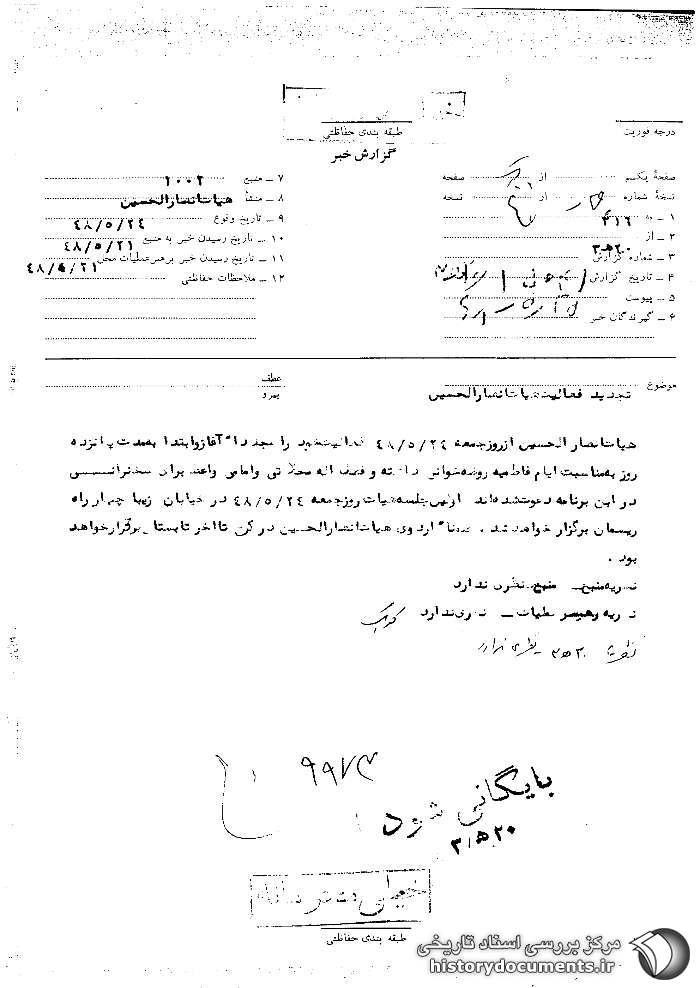 درجه فوریت
طبقه بندی حفاظتی
گزارش خبر
صفحهٔ یکم از صفحه
نسخهٔ شماره از نسخه
۱ ـ به ۳۱۶
۲ ـ از
۳ ـ شماره گزارش
۴ ـ تاریخ گزارش
۵ ـ پیوست
۶ ـ گیرندگان خبر
۷ ـ منبع ۱۰۰۲
۸ ـ منشأ هیات انصارالحسین
۹ ـ تاریخ وقوع ۴۸/۵/۲۴
۱۰ ـ تاریخ رسیدن خبر به منبع ۴۸/۵/۲۱
۱۱ ـ تاریخ رسیدن خبر برهبر عملیات محل ۴۸/۵/۲۱
۱۲ ـ ملاحظات حفاظتی
موضوع تجدید فعالیت هیات انصارالحسین
عطف
پیرو
هیات انصار الحسین از روز جمعه ۴۸/۵/۲۴ فعالیت خود را مجددا" آغاز و ابتدا بمدت پانزده
روز به مناسبت ایام فاطمیه روضه خوانی داشته و فضل اله محلاتی و امامی واعظ برای سخنرانی
در این برنامه دعوت شده اند . اولین جلسه هیات روز جمعه ۴۸/۵/۲۴ در خیابان زیبا چهار راه
ریسمان برگزار خواهد شد . ضمنا" اردوی هیات انصارالحسین در کن تا اخر تابستان برقرار خواهد
بود .
نظریه منبع ـ منبع نظری ندارد
نظریه رهبر عملیات ـ نظری ندارد
نظری ندارد
۹۹۷۳
بایگانی شود
۲۰ه۳
خیلی محرمانه
طبقه بندی حفاظتی
مرکز بررسی اسناد تاریخی
historydocuments.ir